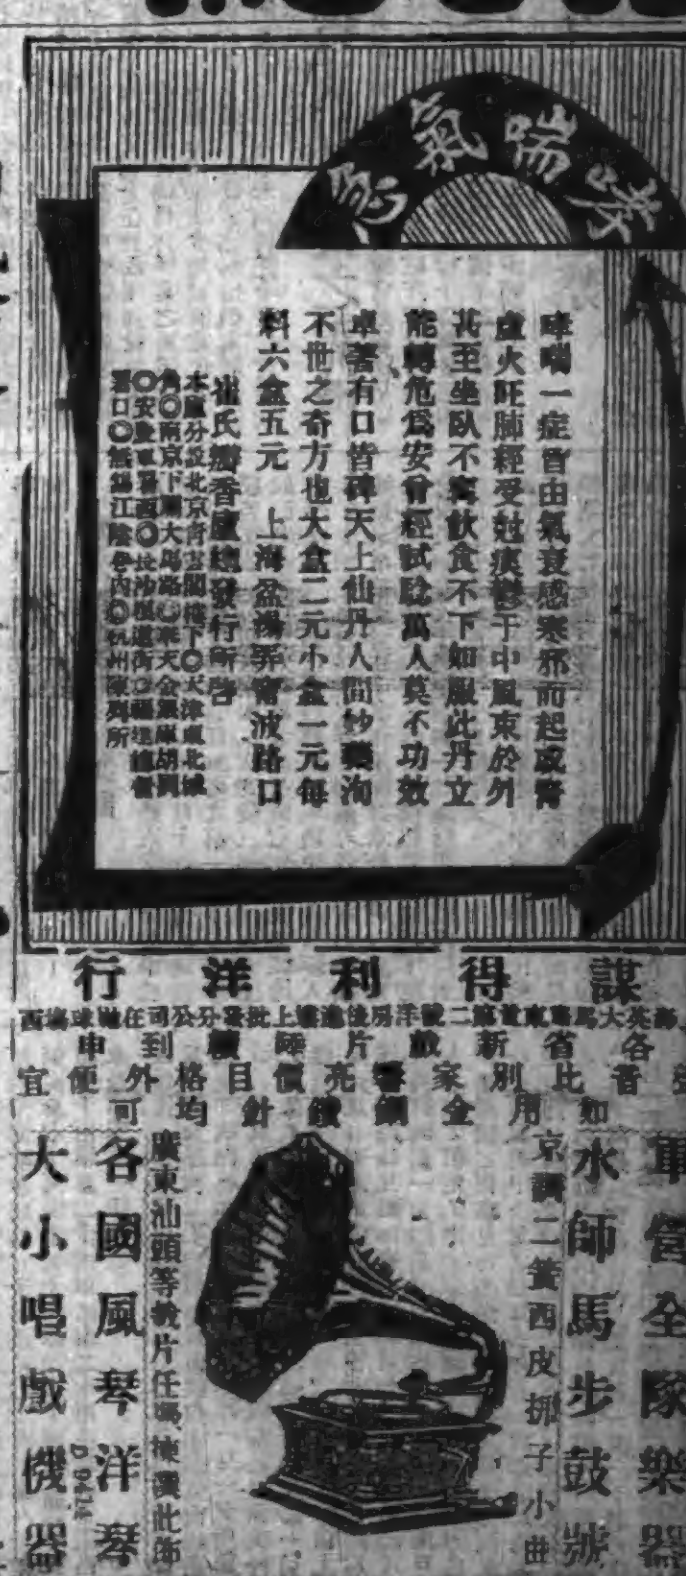 哮喘氣急
哮喘一症皆由氣衰感寒邪而起或腎
虛火旺肺經受尅痰鬱于中風束於外
甚至坐臥不寧飲食不下如服此丹立
能轉危爲安曾經試驗萬人莫不功效
卓著有口皆碑天上仙丹人間妙藥洵
不世之奇方也大盒二元小盒一元每
料六盒五元　上海盆湯弄寧波路口
崔氏瓣香廬總發行所啓
本廬分設北京靑雲閣樓下◎天津東北城
角◎南京下關大馬路◎奉天金銀庫胡同
◎安慶
口◎無錫江陰巷內◎杭州陳列所
謀得利洋行
英大馬路東首第二號洋房
各省新戲片陸續到申
音比別家響亮價目格外便宜
如用金鋼鑽針均可
軍營全隊樂器
水師馬步鼓號
京調二簧西皮梆子小曲
廣東汕頭等戲片任憑揀選此佈
各國風琴洋琴
D D424
大小唱戲機器